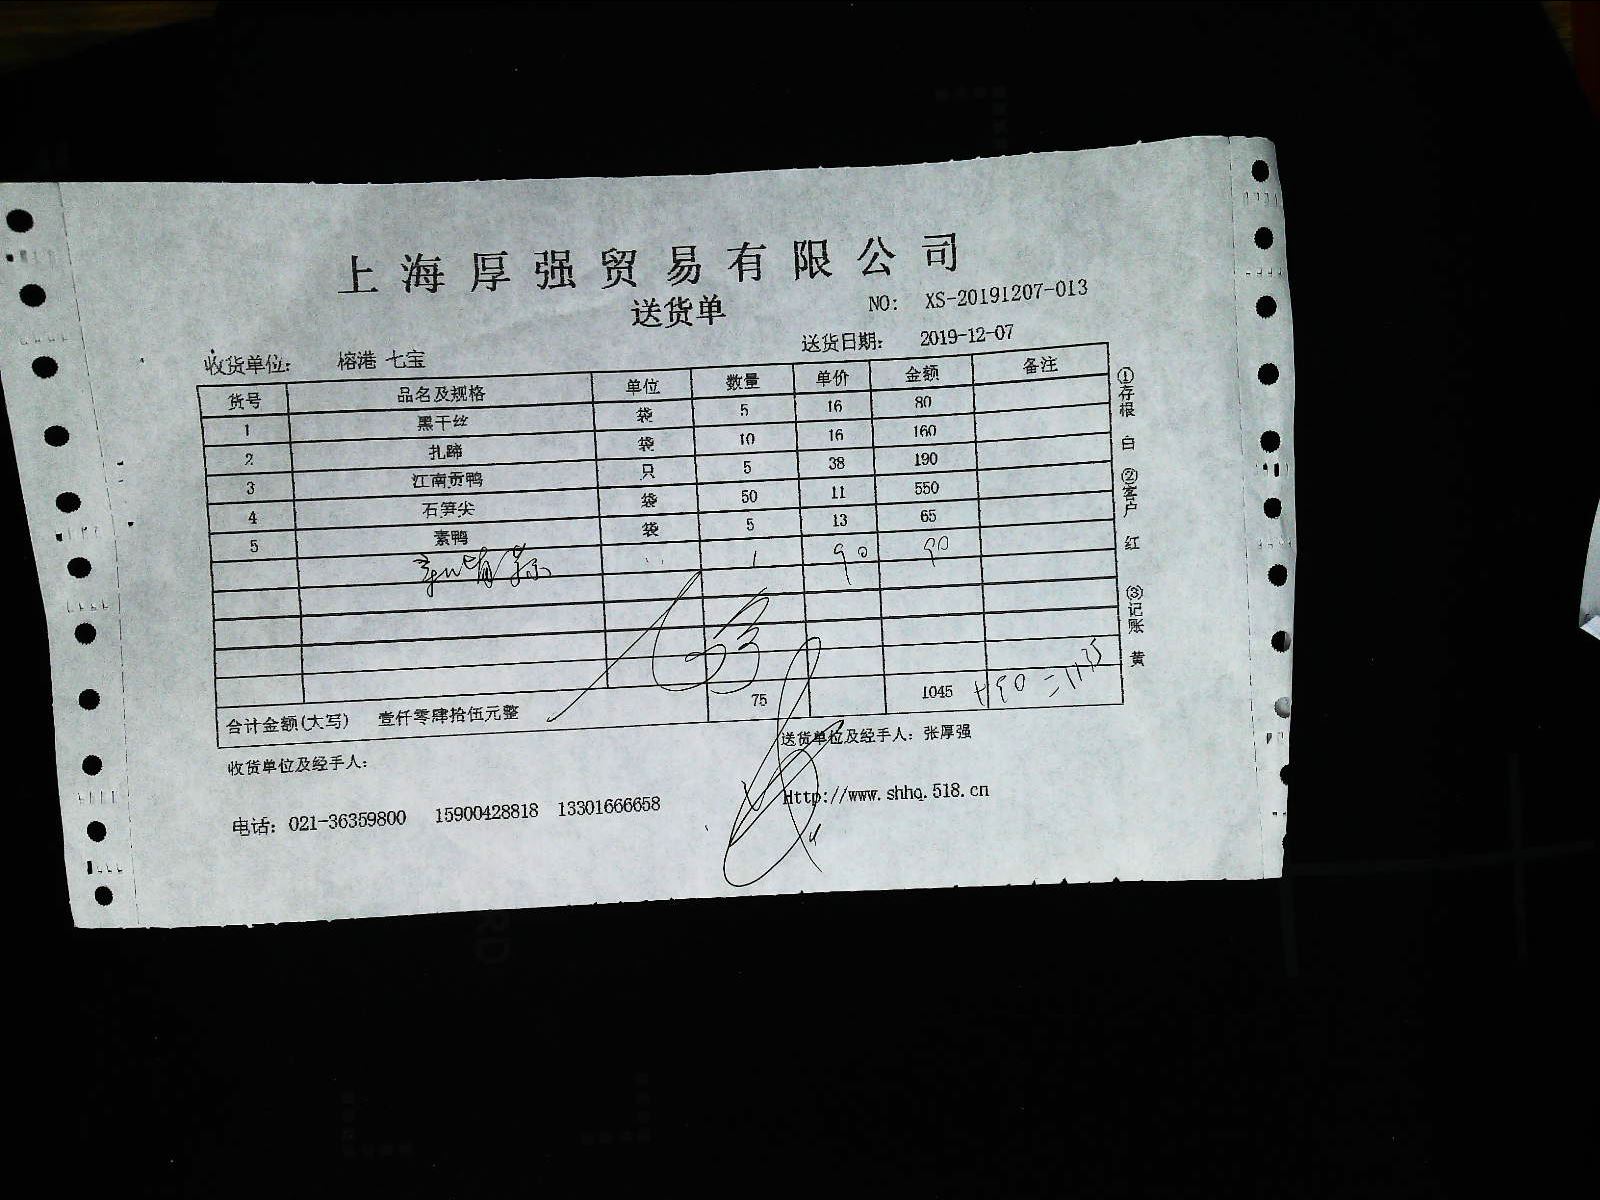 上海厚强贸易有限公司
送货单
NO: XS-20191207-013
收货单位: 榕港 七宝
送货日期: 2019-12-07
货号 品名及规格 单位 数量 单价 金额 备注
1 黑干丝 袋 5 16 80
2 扎蹄 袋 10 16 160
3 江南贡鸭 只 5 38 190
4 石笋尖 袋 50 11 550
5 素鸭 袋 5 13 65
1 90 90
合计金额(大写) 壹仟零肆拾伍元整 75 1045 +90=1135
收货单位及经手人:
送货单位及经手人: 张厚强
电话: 021-36359800 15900428818 13301666658
Http://www.shhq.518.cn
①存根 白 ②客户 红 ③记账 黄